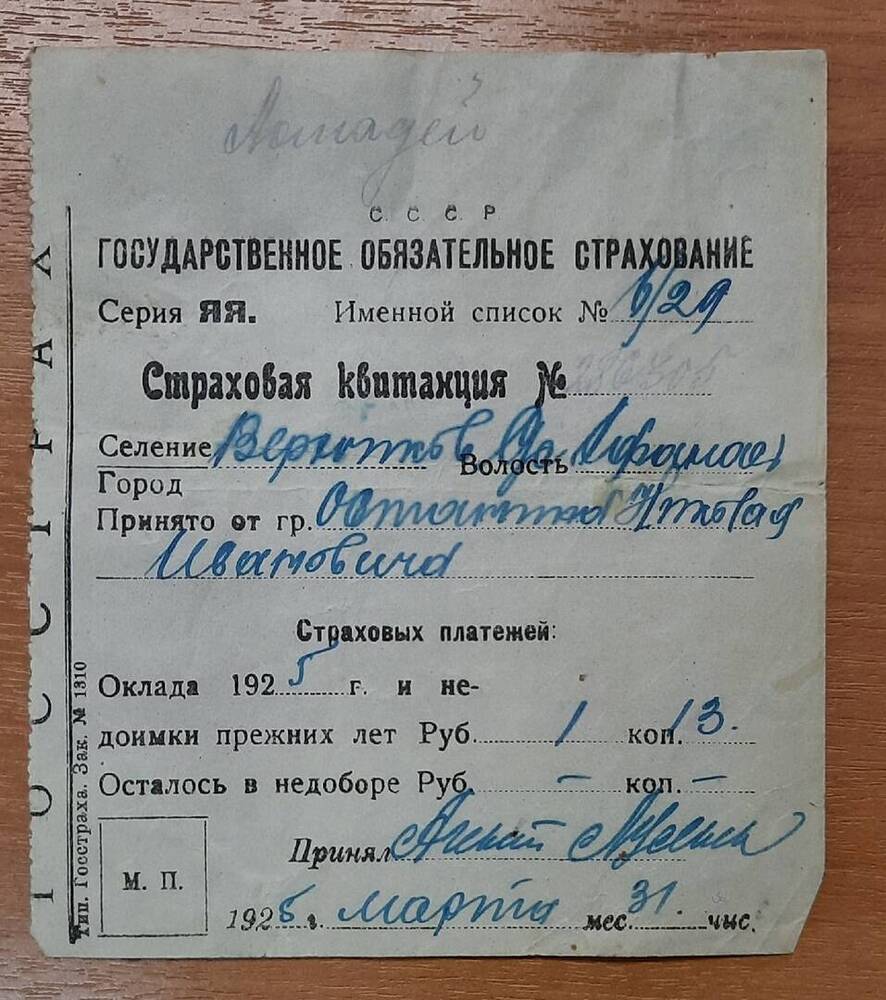 Лошадей
С С С Р
ГОСУДАРСТВЕННОЕ ОБЯЗАТЕЛЬНОЕ СТРАХОВАНИЕ
Серия ЯЯ. Именной список № 6/29
Страховая квитанция №
Селение Волость
Город
Принято от гр.
Ивановича
Страховых платежей:
Оклада 1925 г. и не-
доимки прежних лет Руб. 1 коп. 13.
Осталось в недоборе Руб. – коп. –
Принял
М. П.
1925 г. марта мес. 31. чис.
Тип. Госстраха. Зак. № 1310
ГОССТРАХ